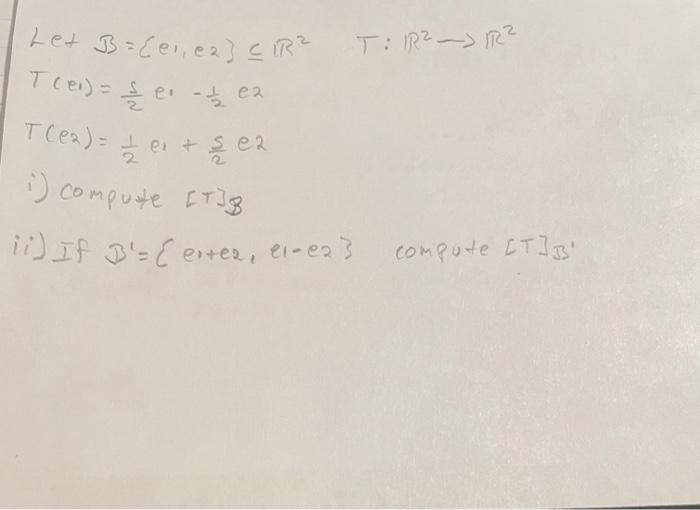 Let B = {e1, e2} ⊆ ℝ² T: ℝ² → ℝ²
T(e1) = 5/2 e1 - 1/2 e2
T(e2) = 1/2 e1 + 5/2 e2
i) compute [T]B
ii) If B' = {e1+e2, e1-e2} compute [T]B'